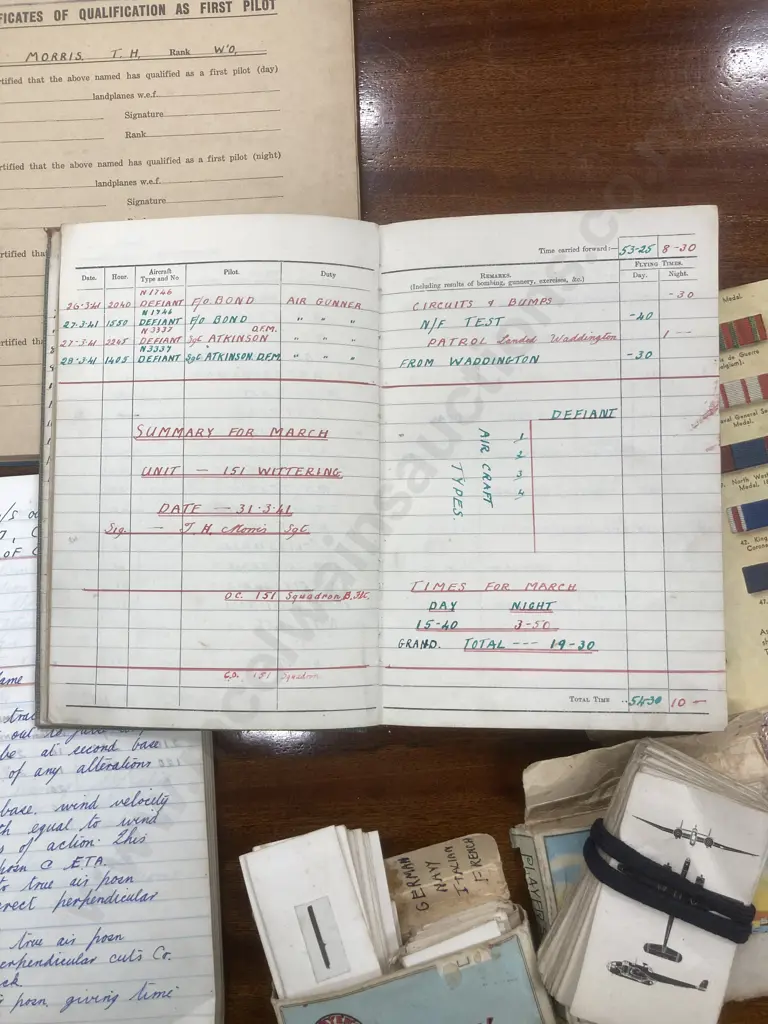 FICATES OF QUALIFICATION AS FIRST PILOT
MORRIS, T. H, Rank W'O,
rtified that the above named has qualified as a first pilot (day)
landplanes w.e.f.
Signature
Rank
rtified that the above named has qualified as a first pilot (night)
landplanes w.e.f.
Signature
rtified tha
rtified that
Time carried forward :— 53-25 8-30
Date. Hour. Aircraft Type and No Pilot. Duty
REMARKS. (Including results of bombing, gunnery, exercises, &c.)
FLYING TIMES.
Day. Night.
N1746
26·3·41 2040 DEFIANT F/O BOND AIR GUNNER CIRCUITS & BUMPS -30
N1746
27·3·41 1550 DEFIANT F/O BOND " " " N/F TEST -40
N3337 D.F.M.
27·3·41 2245 DEFIANT Sgt ATKINSON " " " PATROL Landed Waddington 1 —
N3337
28·3·41 1405 DEFIANT Sgt ATKINSON D.F.M. " " " FROM WADDINGTON -30
SUMMARY FOR MARCH
UNIT — 151 WITTERING
DATE — 31·3·41
Sig. — T. H. Morris Sgt
O.C. 151 Squadron,
C.O. 151 Squadron
DEFIANT
AIR CRAFT TYPES.
1
2
3
4
TIMES FOR MARCH
DAY NIGHT
15-40 3-50
GRAND. TOTAL --- 19-30
TOTAL TIME 54-30 10 —
Medal.
de Guerre
elgium).
General Se
Medal.
North West
Medal,
42. King
Corone
47.
/S
OF
ame
trac
be at second base
of any alterations
base. wind velocity
equal to wind
of action. This
posn C ETA.
true air posn
rect perpendicular
true air posn
erpendicular cuts Co.
ck
posn. giving time
GERMAN
NAVY
ITALIAN
FRENCH
PLAYER